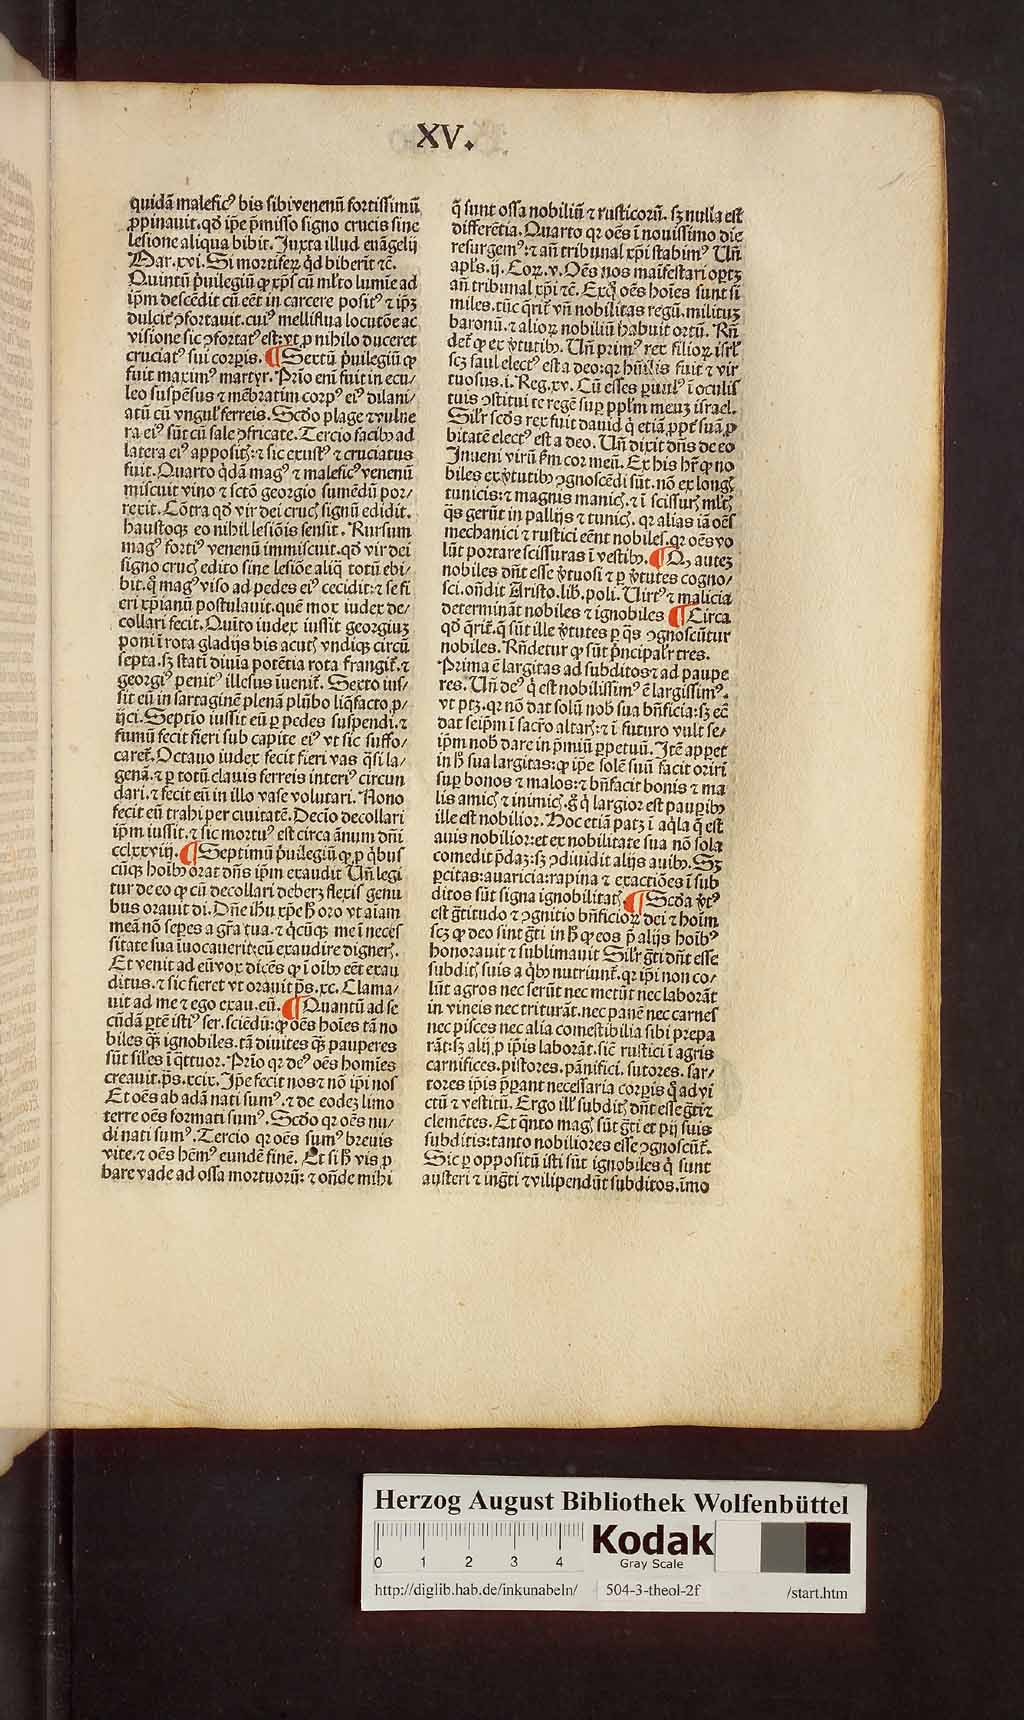 XV.
quidā malefic⁹ bis sibi venenū fortissimū
ꝓpinauit. qđ ip̄e p̄misso signo crucis sine
lesione aliqua bibit. Juxta illud euāgelij
Mar. xvi. Si mortiferꝫ qd biberīt ⁊c̄.
Quintū p̄uilegiū ꝙ xp̄s cū ml̓to lumīe ad
ip̄m descēdit cū eēt in carcere posit⁹ ⁊ ip̄ꝫ
dulcit̓ ↄfortauit. cui⁹ melliflua locutōe ac
visione sic ↄfortat⁹ est: vt ꝓ nihilo duceret
cruciat⁹ sui corꝑis. ¶ Sextū p̓uilegiū ꝙ
fuit maxim⁹ martyr. Prīo eni fuit in ecu/
leo suspēsus ⁊ mēbratim corp⁹ ei⁹ dilani/
atū cū vngul̓ ferreis. Scđo plage ⁊ vulne
ra ei⁹ sūt cū sale ↄfricate. Tercio facibꝫ ad
latera ei⁹ apposit̄ꝭ: ⁊ sic exust⁹ ⁊ cruciatus
fuit. Quarto q̓dā mag⁹ ⁊ malefic⁹ venenū
miscuit vino ⁊ sctō georgio sumēdū por/
rexit. Cōtra qđ vir dei crucꝭ signū edidit.
haustoqꝫ eo nihil lesiōis sensit. Rursum
mag⁹ forti⁹ venenū immiscuit. qđ vir dei
signo crucꝭ edito sine lesiōe aliq̄ totū ebi/
bit. q̄ mag⁹ viso ad pedes ei⁹ cecidit: ⁊ se fi
eri xp̄ianū postulauit. quē mox iudex de/
collari fecit. Quīto iudex iussit georgiuꝫ
poni ī rota gladijs bis acutꝭ vndiqꝫ circū
septa. sꝫ statī diuia potētia rota frangit̄. ⁊
georgi⁹ penit⁹ illesus īuenit̄. Sexto ius/
sit eū in sartaginē plenā plūbo liq̄facto ꝓ/
ijci. Septīo iussit eū ꝑ pedes suspendi. ⁊
fumū fecit fieri sub capite ei⁹ vt sic suffo/
caret̄. Octauo iudex fecit fieri vas q̄si la/
genā. ⁊ ꝑ totū clauis ferreis interi⁹ circun
dari. ⁊ fecit eū in illo vase volutari. Nono
fecit eū trahi per ciuitatē. Decīo decollari
ip̄m iussit. ⁊ sic mortu⁹ est circa ānum dn̄i
cclxxviij. ¶ Septimū p̓uilegiū ꝙ ꝓ q̓bus
cūqꝫ hoībꝫ orat dn̄s ip̄m exaudit Un̄ legi
tur de eo ꝙ cū decollari deberꝫ flexis genu
bus orauit di. Dn̄e ihū xp̄e h̄ oro vt aīam
meā nō seꝑes a gr̄a tua. ⁊ q̓cūqꝫ me ī neces
sitate sua īuocauerit: cū exaudire dignerꝭ.
Et venit ad eū vox dicēs ꝙ ī oībꝫ eēt exau
ditus. ⁊ sic fieret vt orauit p̄s. xc. Clama/
uit ad me ⁊ ego exau. eū. ¶ Quantū ad se
cūdā ꝑtē isti⁹ ser. sciēdū: ꝙ oēs hoīes tā no
biles q̄ꝫ ignobiles. tā diuites q̄ꝫ pauperes
sūt siles ī q̄ttuor. Prīo qꝛ de⁹ oēs homies
creauit. p̄s. xcix. Ip̄e fecit nos ⁊ nō ip̄i nos
Et oēs ab adā nati sum⁹. ⁊ de eodeꝫ limo
terre oēs formati sum⁹. Scđo qꝛ oēs nu/
di nati sum⁹. Tercio qꝛ oēs sum⁹ breuis
vite. ⁊ oēs hēm⁹ eundē finē. Et si h̄ vis ꝓ
bare vade ad ossa mortuorū: ⁊ on̄de mihi
q̄ sunt ossa nobiliū ⁊ rusticorū. sꝫ nulla est
differētia. Quarto qꝛ oēs ī nouissimo die
resurgem⁹: ⁊ an̄ tribunal xp̄i stabim⁹ Un̄
apl̓s. ij. Corꝫ. v. Oēs nos maifestari oꝑtꝫ
an̄ tribunal xp̄i ⁊c̄. Exq̄ oēs hoīes sunt si
miles. tūc q̄rit̄ vn̄ nobilitas regū. militūꝫ
baronū. ⁊ alioꝝ nobiliū habuit ortū. Rn̄
det̄ ꝙ ex v̓tutibꝫ. Un̄ prim⁹ rex filioꝝ isrl̓
scꝫ saul elect⁹ est a deo: qꝛ hūilis fuit ⁊ vir
tuosus. i. Reg. xv. Cū esses ꝑuul⁹ ī oculis
tuis ↄstitui te regē suꝑ pplm̄ meuꝫ israel.
Sil̓r scđs rex fuit dauid q̓ etiā ꝓpt̓ suā ꝓ
bitatē elect⁹ est a deo. Un̄ dixit dn̄s de eo
Inueni virū ẜm cor meū. Ex his hr̄ ꝙ no
biles ex v̓tutibꝫ ↄgnoscēdi sūt. nō ex longꝭ
tunicis: ⁊ magnis manicꝭ. ⁊ ī scissurꝭ ml̓tꝭ
q̄s gerūt in pallijs ⁊ tunicꝭ. qꝛ alias iā oēs
mechanici ⁊ rustici eēnt nobiles. qꝛ oēs vo
lūt portare scissuras ī vestibꝫ. ¶ Qꝫ auteꝫ
nobiles dn̄t esse v̓tuosi ⁊ ꝑ v̓tutes cogno/
sci. on̄dit Aristo. lib. poli. Uirt⁹ ⁊ malicia
determināt nobiles ⁊ ignobiles ¶ Circa
qđ q̄rit̄. q̄ sūt ille v̓tutes ꝑ q̄s ↄgnoscūtur
nobiles. Rn̄detur ꝙ sūt p̓ncipal̓r tres.
Prima ē largitas ad subditos ⁊ ad paupe
res. Un̄ de⁹ q̓ est nobilissim⁹ ē largissim⁹.
vt ptꝫ. qꝛ nō dat solū nob̄ sua bn̄ficia: sꝫ ec̄
dat seip̄m ī sacr̄o altarꝭ: ⁊ ī futuro vult se/
ip̄m nob̄ dare in p̄miū ꝑpetuū. Itē apꝑet
in h̄ sua largitas: ꝙ ip̄e solē suū facit oriri
suꝑ bonos ⁊ malos: ⁊ bn̄facit bonis ⁊ ma
lis amicꝭ ⁊ inimicꝭ. g̊ q̓ largior est pauꝑibꝫ
ille est nobilior. Hoc etiā patꝫ ī aq̓la q̄ est
auis nobilior: et ex nobilitate sua nō sola
comedit p̄daꝫ: sꝫ ↄdiuidit alijs auibꝫ. Sꝫ
ꝑcitas: auaricia: rapina ⁊ exactiōes ī sub
ditos sūt signa ignobilitatꝭ ¶ Scđa v̓t⁹
est g̓titudo ⁊ ↄgnitio bn̄ficioꝝ dei ⁊ hoīm
scꝫ ꝙ deo sint g̓ti in h̄ ꝙ eos p̄ alijs hoībꝫ
honorauit ⁊ sublimauit Sil̓r g̓ti dn̄t esse
subditꝭ suis a q̓bꝫ nutriunt̄. qꝛ ip̄i non co/
lūt agros nec serūt nec metūt nec laborāt
in vineis nec triturāt. nec panē nec carnes
nec pisces nec alia comestibilia sibi prepa
rāt: sꝫ alij ꝓ ip̄is laborāt. sic̄ rustici ī agris
carnifices. pistores. pānifici. sutores. sar/
tores ip̄is p̄ꝑant necessaria corꝑis q̄ ad vi
ctū ⁊ vestitū. Ergo ill̓ subditꝭ dn̄t esse g̓ti ⁊
clemētes. Et q̄nto magꝭ sūt g̓ti et pij suis
subditis: tanto nobiliores esse ↄgnoscūt̄.
Sic ꝑ oppositū isti sūt ignobiles q̓ sunt
austeri ⁊ ing̓ti ⁊ vilipendūt subditos. īmo
Herzog August Bibliothek Wolfenbüttel
0 1 2 3 4
Kodak
Gray Scale
http://diglib.hab.de/inkunabeln/ 504-3-theol-2f /start.htm